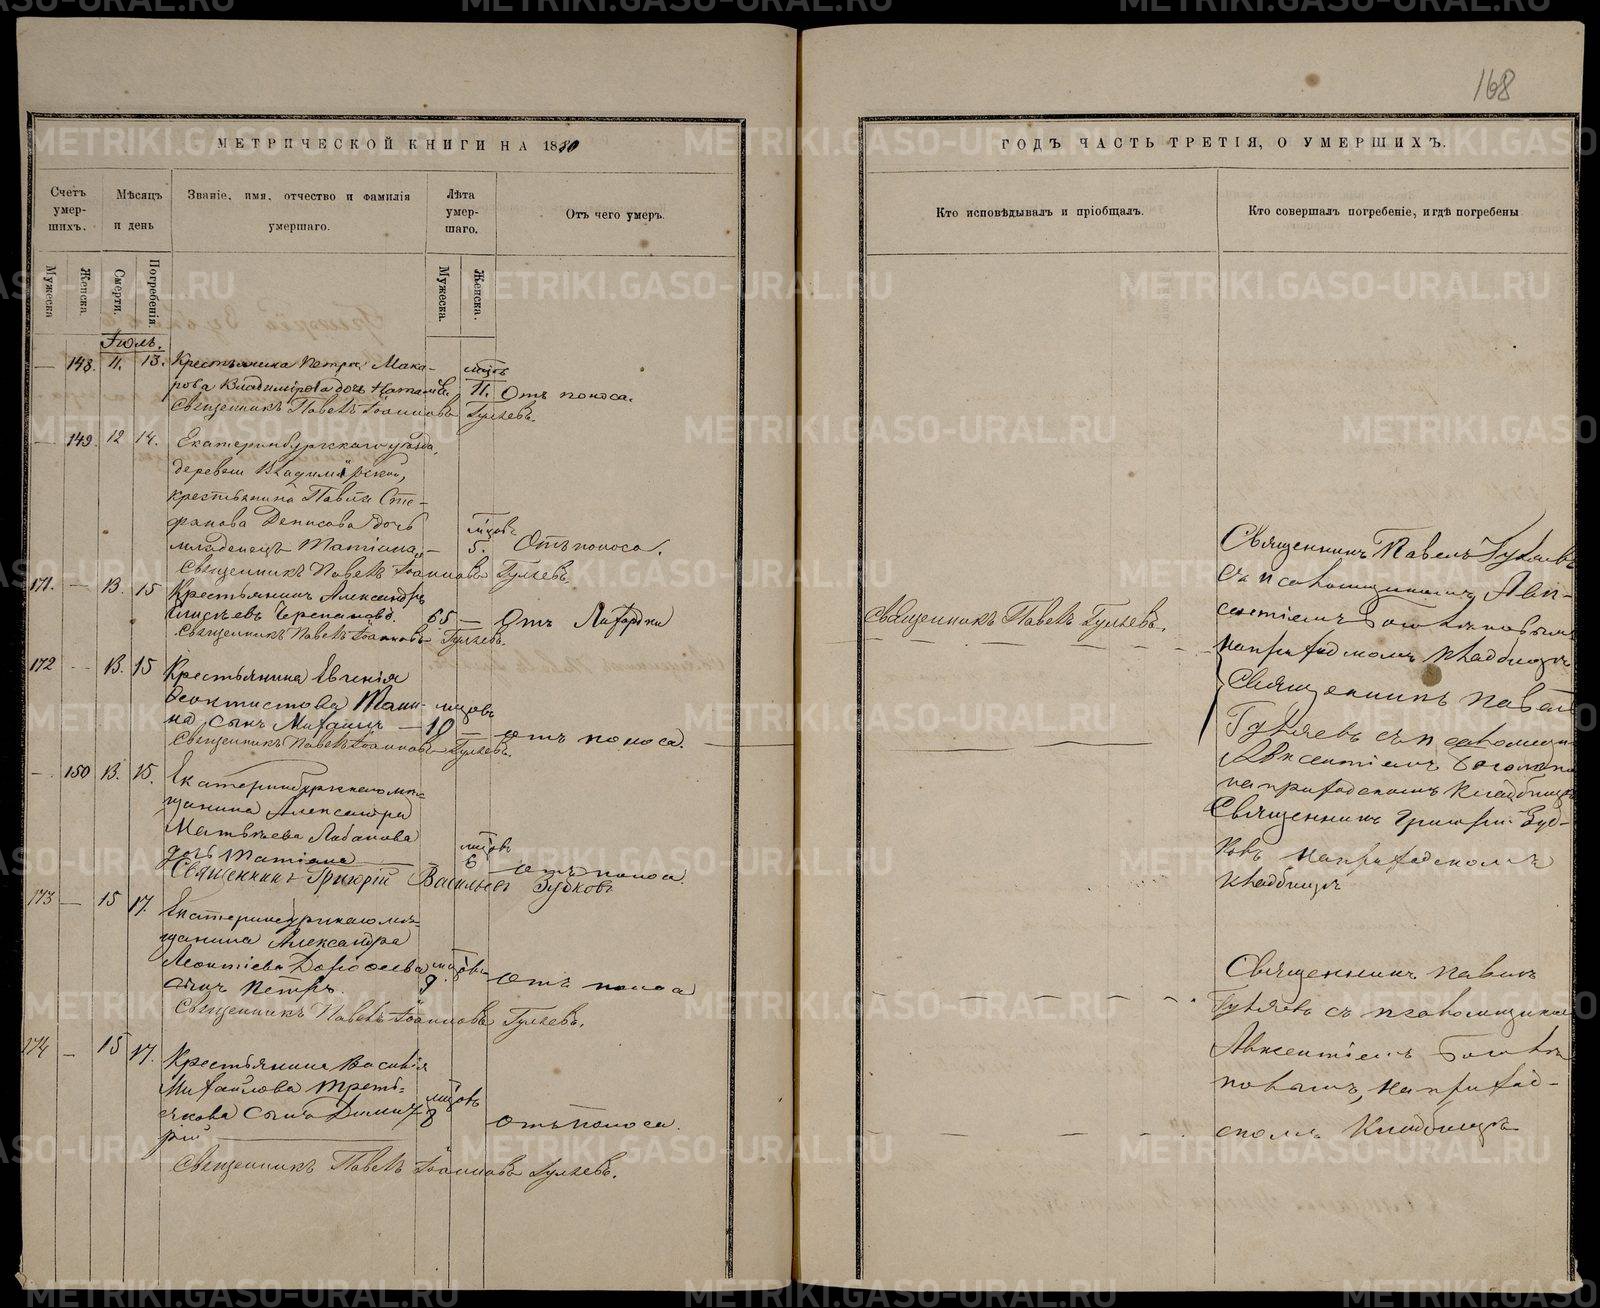 168
МЕТРИЧЕСКОЙ КНИГИ НА 1880
ГОДЪ ЧАСТЬ ТРЕТІЯ, О УМЕРШИХЪ.
Счетъ умер- шихъ.
Мѣсяцъ и день
Званіе, имя, отчество и фамилія умершаго.
Лѣта умер- шаго.
Отъ чего умеръ.
Кто исповѣдывалъ и пріобщалъ.
Кто совершалъ погребеніе, и гдѣ погребены
Мужеска
Женска.
Смерти.
Погребенія
Мужеска.
Женска.
Іюль.
— 148. 11. 13. Крестьянина Петра Мака-
рова Владимірова дочь Наталія. мцовъ 11. Отъ поноса.
Священникъ Павелъ Іоанновъ Гуляевъ.
— 149. 12 14. Екатеринбургскаго уѣзда,
деревни Владимірской,
крестьянина Павла Сте-
фанова Денисова дочь
младенецъ Татіана, — мцовъ 5. Отъ поноса.
Священникъ Павелъ Іоанновъ Гуляевъ.
171. — 13. 15 Крестьянинъ Александръ
Елисѣевъ Черепановъ. 65 — Отъ
Священникъ Павелъ Іоанновъ Гуляевъ.
172 — 13. 15 Крестьянина Евгенія
Феоктистова
сынъ Михаилъ — мцовъ 10 — отъ поноса.
Священникъ Павелъ Іоанновъ Гуляевъ.
— 150 13. 15. Екатеринбургскаго мѣ-
щанина Александра
Матвѣева Лабанова
дочь Татіана мцовъ 6 отъ поноса.
Священникъ Григорій Васильевъ Зубковъ
173 — 15 17. Екатеринбургскаго мѣ-
щанина Александра
Леонтіева Дорофеева мцовъ 9.
сынъ Петръ. отъ поноса
Священникъ Павелъ Іоанновъ Гуляевъ.
174 — 15 17. Крестьянина Василія
Михайлова Треть-
якова сынъ Димит- мцовъ 8 отъ поноса.
рій
Священникъ Павелъ Іоанновъ Гуляевъ.
Священникъ Павелъ Гуляевъ.
Священникъ Павелъ Гуляевъ
съ псаломщикомъ Авк-
сентіемъ Богомоловымъ
на приходскомъ кладбищѣ
Священникъ Павелъ
Гуляевъ съ псаломщи-
Авксентіемъ
на приходскомъ кладбищѣ
Священникъ Григорій Зуб-
ковъ на приходскомъ
кладбищѣ
Священникъ Павелъ
Гуляевъ съ псаломщикомъ
Авксентіемъ
на приход-
скомъ кладбищѣ
METRIKI.GASO-URAL.RU